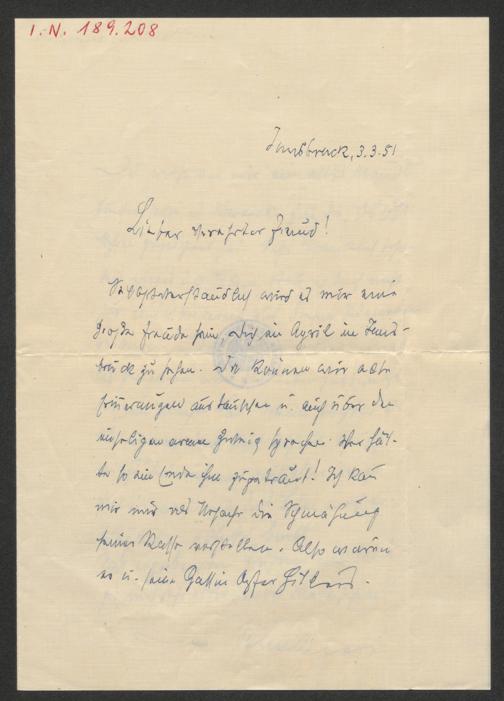 I.N. 189.208
Innsbruck, 3.3.51
Lieber verehrter Freund!
Selbstverständlich wird es mir eine
große Freude sein, Dich im April in Inns-
bruck zu sehen. Da können wir alte
Erinnerungen austauschen u. auch über den
unseligen armen sprechen. Wer hät-
te so ein Ende ihm zugetraut! Ich kann
mir nur als Ursache die Schmähung
seiner Rasse vorstellen. Also waren
er u. seine Gattin Opfer Hitlers.